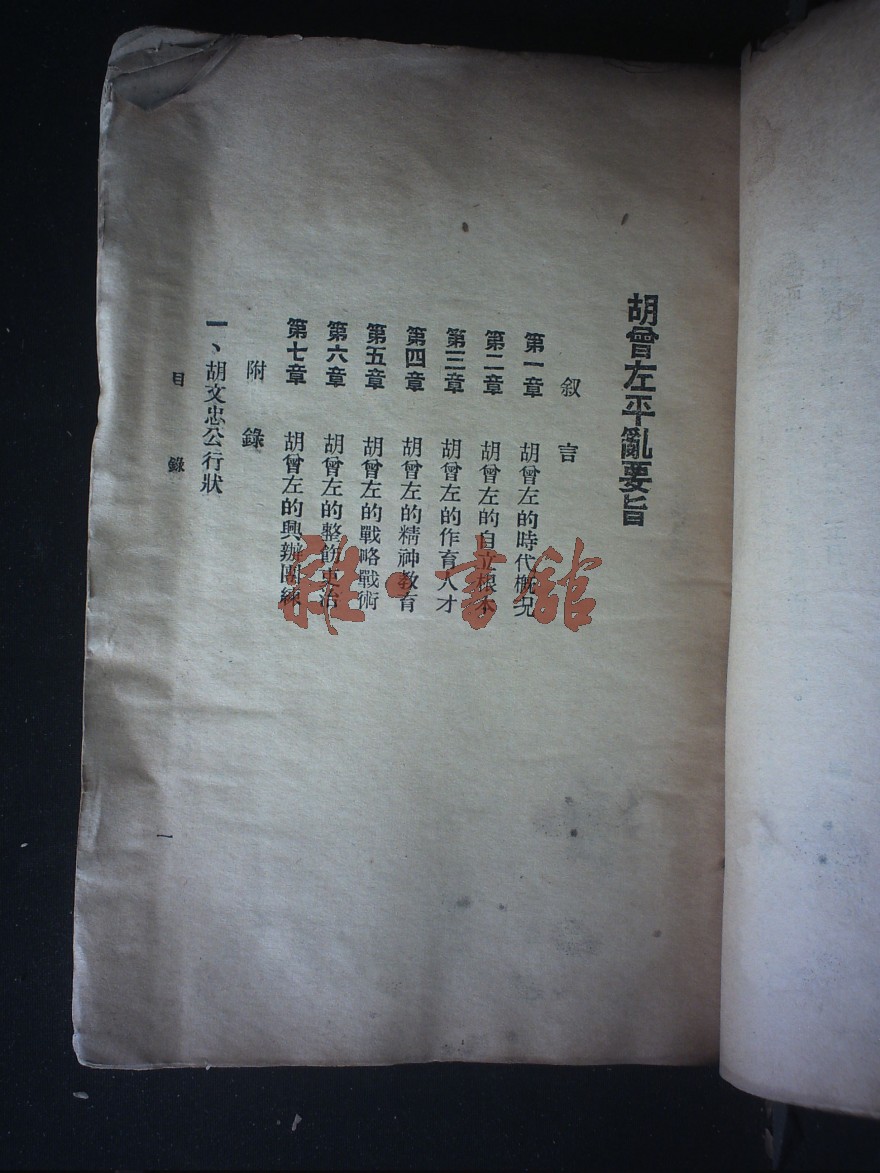 胡曾左平亂要旨
叙言
第一章 胡曾左的時代概況
第二章 胡曾左的自立根本
第三章 胡曾左的作育人才
第四章 胡曾左的精神教育
第五章 胡曾左的戰略戰術
第六章 胡曾左的整飭吏治
第七章 胡曾左的興辦團練
附錄
一、胡文忠公行狀
目錄
一
雜·書館